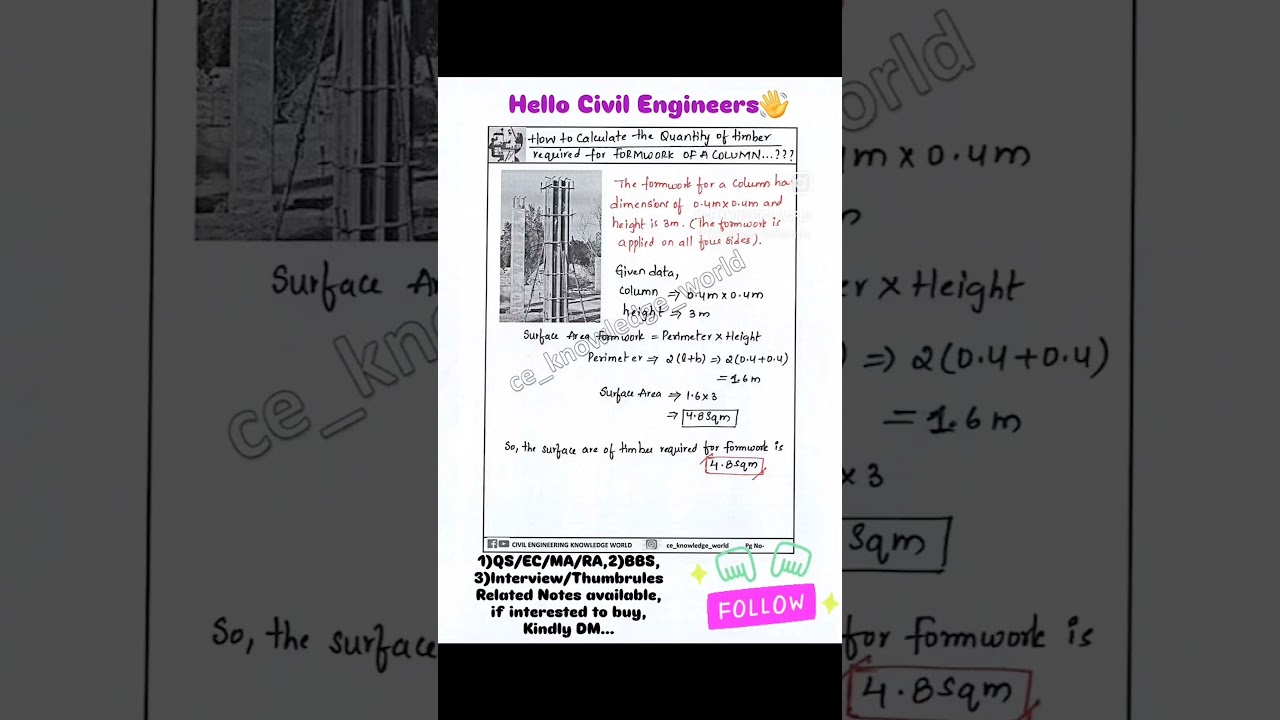 Hello Civil Engineers👋
How to Calculate the Quantity of timber
required for FORMWORK OF A COLUMN...???
The formwork for a column ha
dimensions of 0.4m x 0.4m and
height is 3m. (The formwork is
applied on all four sides).
Given data,
Column ⇒ 0.4m x 0.4m
height ⇒ 3m
Surface Area formwork = Perimeter x Height
Perimeter ⇒ 2(l+b) ⇒ 2(0.4+0.4)
= 1.6m
Surface Area ⇒ 1.6 x 3
⇒ 4.8 Sqm
So, the surface are of timber required for formwork is
4.8 sqm
ce_knowledge_world
CIVIL ENGINEERING KNOWLEDGE WORLD ce_knowledge_world Pg No-
1)QS/EC/MA/RA,2)BBS,
3)Interview/Thumbrules
Related Notes available,
if interested to buy,
Kindly DM...
FOLLOW
m x 0.4m
Surface A
er x Height
) ⇒ 2(0.4+0.4)
= 1.6m
x 3
Sqm
So, the surface
for formwork is
4.8 sqm
ce_kno
orld